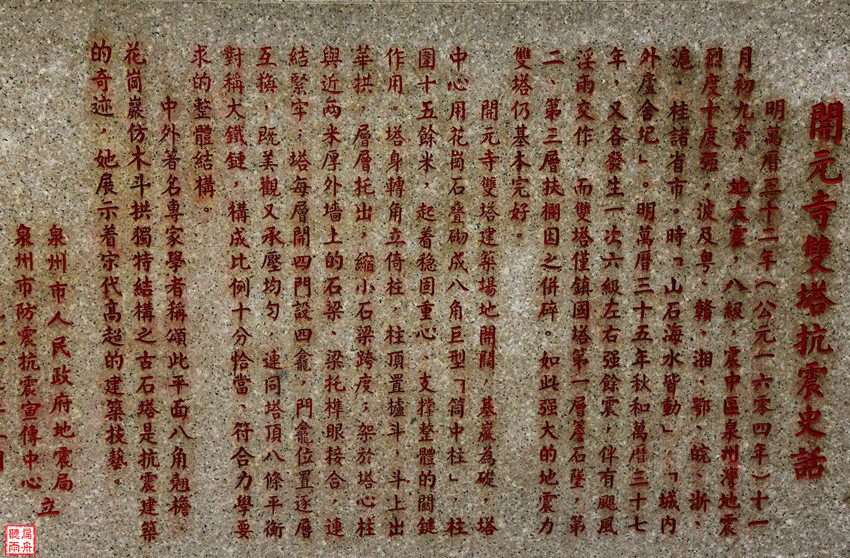 開元寺雙塔抗震史話
明萬曆三十二年（公元一六零四年）十一
月初九夜，地大震，八級，震中區泉州灣地震
烈度十度强，波及粤、贛、湘、鄂、皖、浙、
滬、桂諸省市。時「山石海水皆動」，「城内
外廬舍圮」。明萬曆三十五年秋和萬曆三十七
年，又各發生一次六級左右强餘震，伴有颶風
淫雨交作，而雙塔僅鎮國塔第一層簷石墜，第
二、第三層扶欄因之併碎。如此强大的地震力
雙塔仍基本完好。
開元寺雙塔建築場地開闊，基巖為礎，塔
中心用花崗石疊砌成八角巨型「筒中柱」，柱
圍十五餘米，起着稳固重心、支撑整體的關鍵
作用。塔身轉角立倚柱，柱頂置櫨斗，斗上出
華拱，層層托出，縮小石梁跨度；架於塔心柱
與近两米厚外墙上的石梁、梁托榫眼接合，連
結緊牢；塔每層開四門設四龕，門龕位置逐層
互换，既美觀又承壓均匀，連同塔頂八條平衡
對稱大鐵鏈，構成比例十分恰當、符合力學要
求的整體結構。
中外著名專家學者稱頌此平面八角翹檐、
花崗巖仿木斗拱獨特結構之古石塔是抗震建築
的奇迹，她展示着宋代高超的建築技藝。
泉州市人民政府地震局
泉州市防震抗震宣傳中心
立